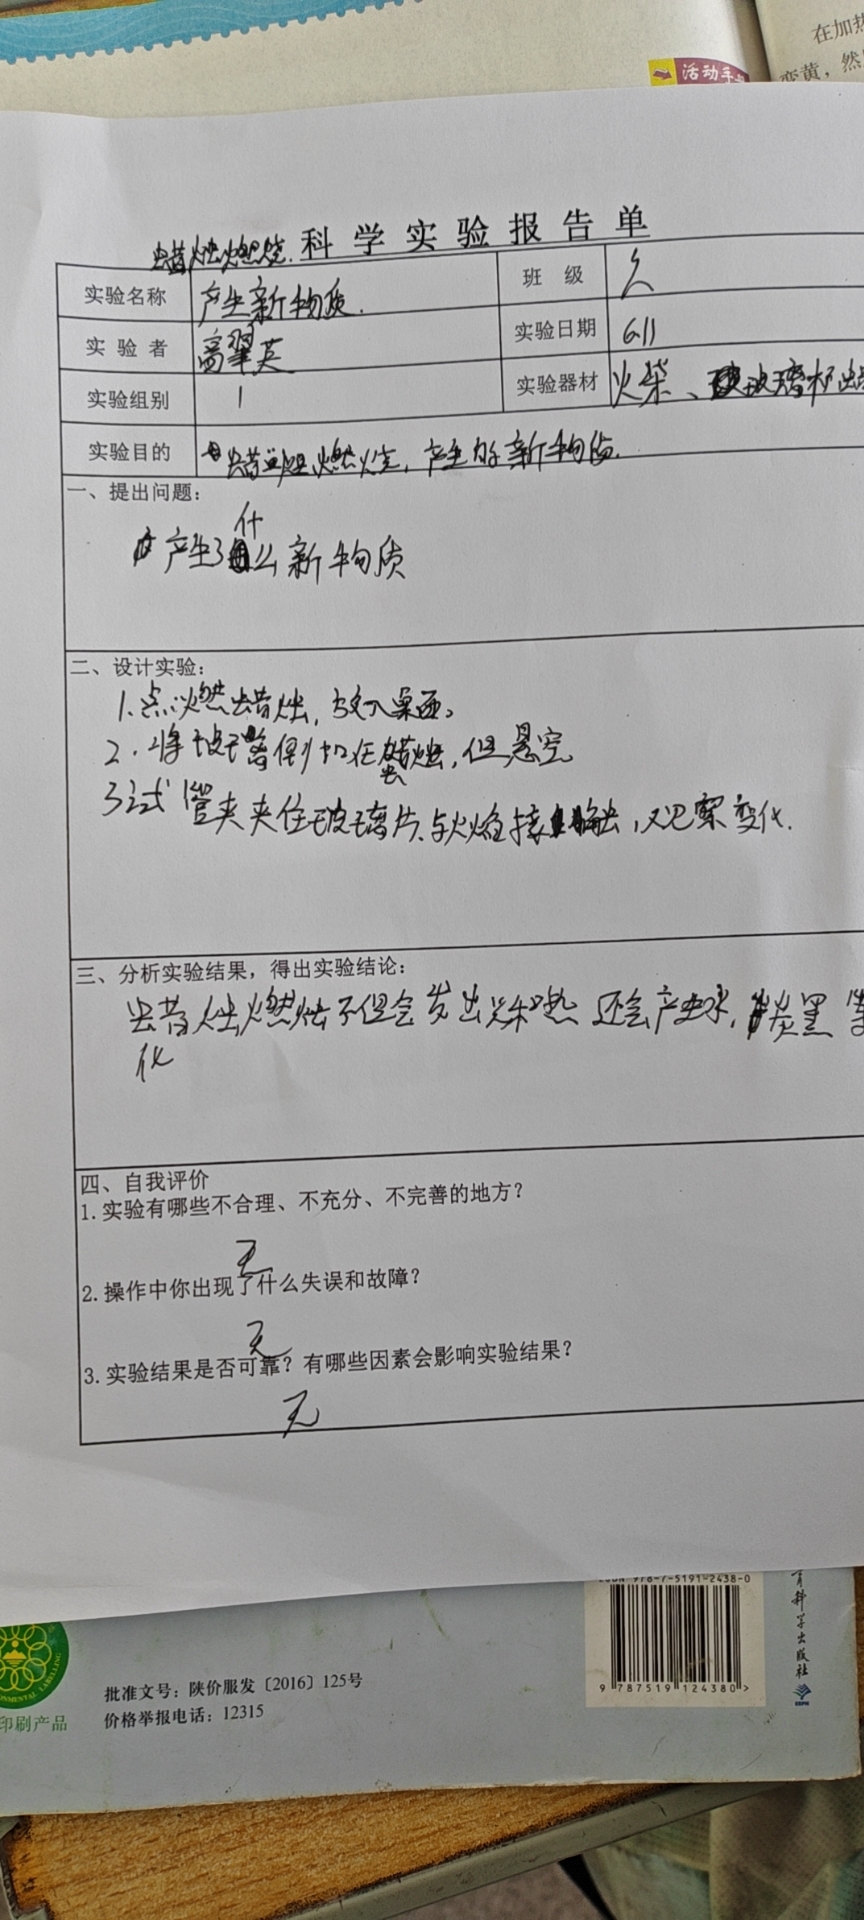 在加热
变黄，然
活动手
蜡烛燃烧 科学实验报告单
实验名称 产生新物质. 班 级 久
实 验 者 高翠英 实验日期 6.11
实验组别 1 实验器材 火柴、玻璃杯
实验目的 蜡烛燃烧，产生的新物质.
一、提出问题：
产生了什么新物质
二、设计实验：
1.点燃蜡烛，放入桌面。
2.将玻璃倒扣在蜡烛，但悬空
3试管夹夹住玻璃片、与火焰接触，观察变化.
三、分析实验结果，得出实验结论：
蜡烛燃烛不但会发出光和热 还会产生水，炭黑等
化
四、自我评价
1.实验有哪些不合理、不充分、不完善的地方？
无
2.操作中你出现了什么失误和故障？
无
3.实验结果是否可靠？有哪些因素会影响实验结果？
无
ISBN 978-7-5191-2438-0
育科学出版社
9 787519 124380 >
批准文号：陕价服发〔2016〕125号
价格举报电话：12315
印刷产品